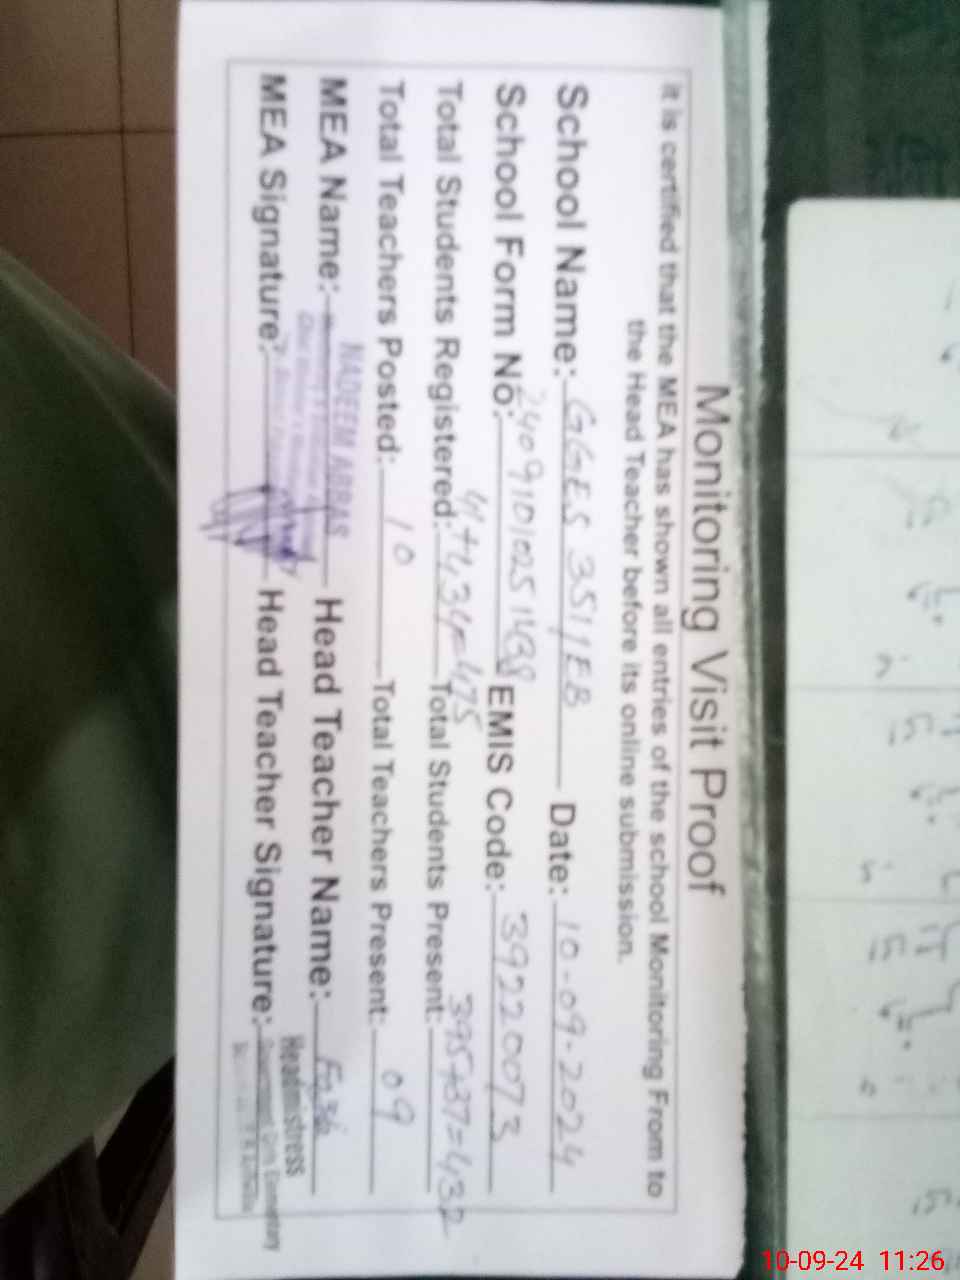 Monitoring Visit Proof
it is certified that the MEA has shown all entries of the school Monitoring From to
the Head Teacher before its online submission.
School Name: GGES 351/EB Date: 10-09-2024
School Form No: EMIS Code: 39220073
Total Students Registered: 41+434=475 Total Students Present: 395+37=432
Total Teachers Posted: 10 Total Teachers Present: 09
MEA Name: NADEEM ABBAS Head Teacher Name:
MEA Signature: Head Teacher Signature: Headmistress
Government Girls Elementary
10-09-24 11:26